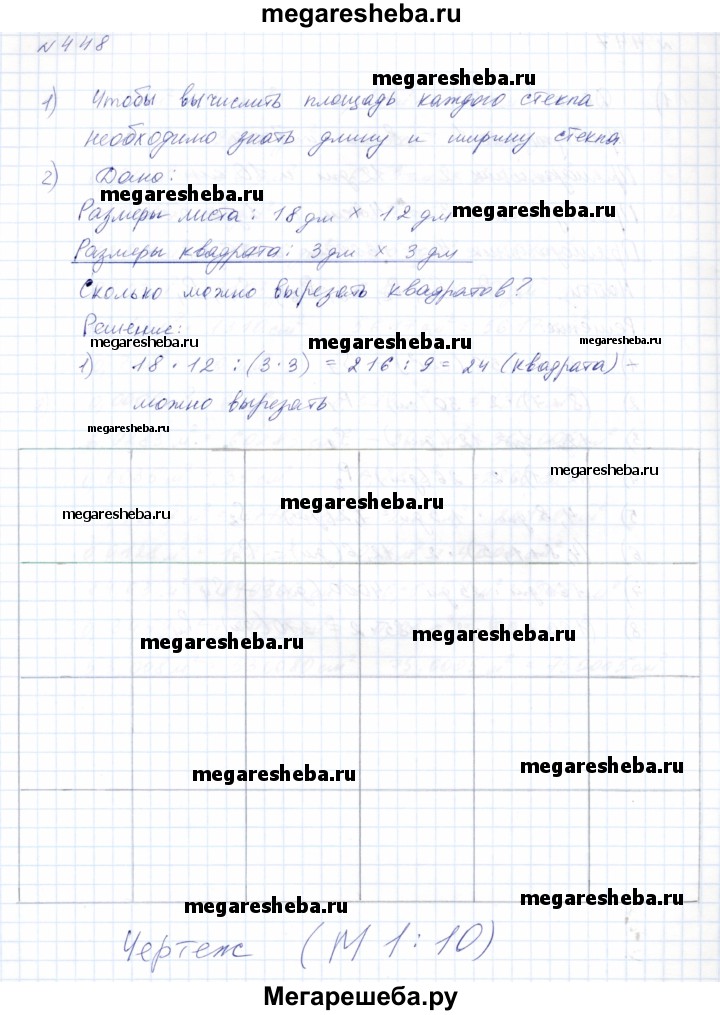 megaresheba.ru
№448
megaresheba.ru
1) Чтобы вычислить площадь каждого стекла
необходимо знать длину и ширину стекла
2) Дано:
megaresheba.ru
Размеры листа: 18 дм × 12 дм
megaresheba.ru
Размеры квадрата: 3 дм × 3 дм
Сколько можно вырезать квадратов?
Решение:
megaresheba.ru megaresheba.ru megaresheba.ru
1) 18 · 12 : (3 · 3) = 216 : 9 = 24 (квадрата) –
можно вырезать
megaresheba.ru
megaresheba.ru
megaresheba.ru
megaresheba.ru
megaresheba.ru
megaresheba.ru
megaresheba.ru
megaresheba.ru
megaresheba.ru
megaresheba.ru
Чертеж (М 1:10)
Мегарешеба.ру